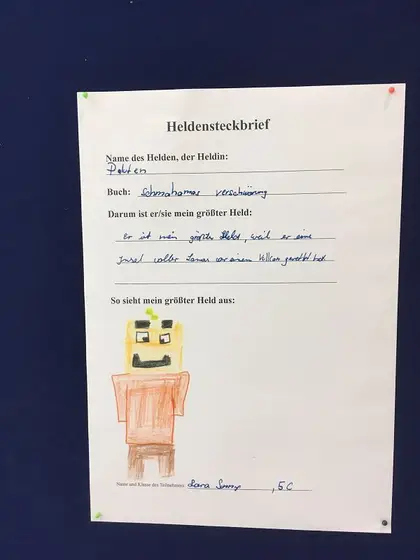 Heldensteckbrief
Name des Helden, der Heldin:
Paluten
Buch: Schmahamas verschwörung
Darum ist er/sie mein größter Held:
er ist mein größter Held, weil er eine
Insel voller Lamas vor einem Vulkan gerettet hat.
So sieht mein größter Held aus:
Name und Klasse des Teilnehmers: Sunny , 5C